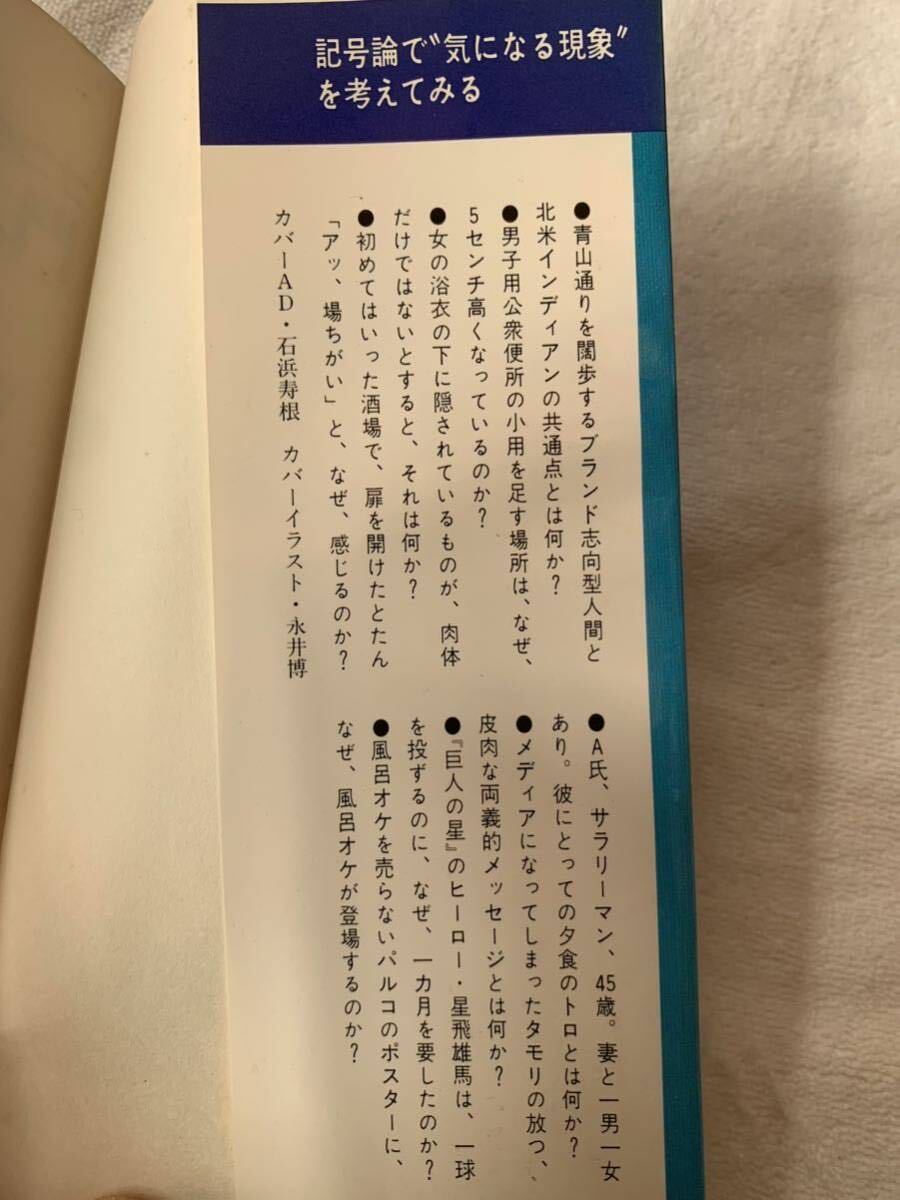 記号論で〝気になる現象〟
を考えてみる
●青山通りを闊歩するブランド志向型人間と
北米インディアンの共通点とは何か?
●男子用公衆便所の小用を足す場所は、なぜ、
5センチ高くなっているのか?
●女の浴衣の下に隠されているものが、肉体
だけではないとすると、それは何か?
●初めてはいった酒場で、扉を開けたとたん
「アッ、場ちがい」と、なぜ、感じるのか?
カバーAD・石浜寿根 カバーイラスト・永井博
●A氏、サラリーマン、45歳。妻と一男一女
あり。彼にとっての夕食のトロとは何か?
●メディアになってしまったタモリの放つ、
皮肉な両義的メッセージとは何か?
●『巨人の星』のヒーロー・星飛雄馬は、一球
を投ずるのに、なぜ、一カ月を要したのか?
●風呂オケを売らないパルコのポスターに、
なぜ、風呂オケが登場するのか?